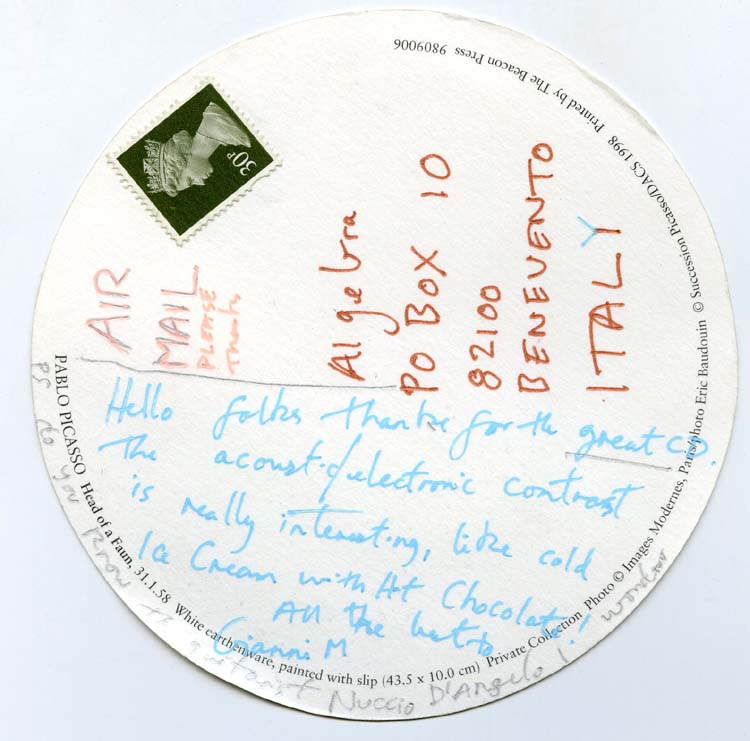 30P
AIR
MAIL
PLEASE
Thanks
Algebra
PO BOX 10
82100
BENEVENTO
ITALY
Hello folks thanks for the great C.D.
The acoustic/electronic contrast
is really interesting, like cold
Ice Cream with Hot Chocolate!
All the best
Gianni M
PS do you know the guitarist Nuccio D'Angelo I wonder
PABLO PICASSO Head of a Faun, 31.1.58 White earthenware, painted with slip (43.5 x 10.0 cm) Private Collection Photo © Images Modernes, Paris/photo Eric Baudouin © Succession Picasso/DACS 1998 Printed by The Beacon Press 9809006